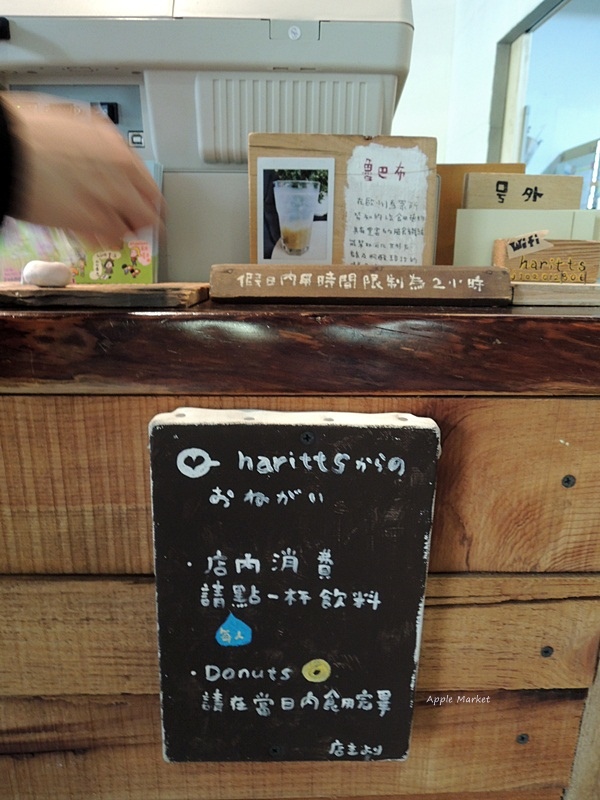 魯巴布
号外
Wifi
haritts
假日內用時間限制為2小時
harittsからの
おねがい
・店內消費
請點一杯飲料
每人
・Donuts
請在當日內食用完畢
店主より
Apple Market